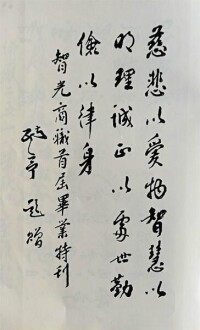 慈悲以愛物智慧以
明理誠正以處世勤
儉以律身
智光商職首屆畢業特刊
題贈